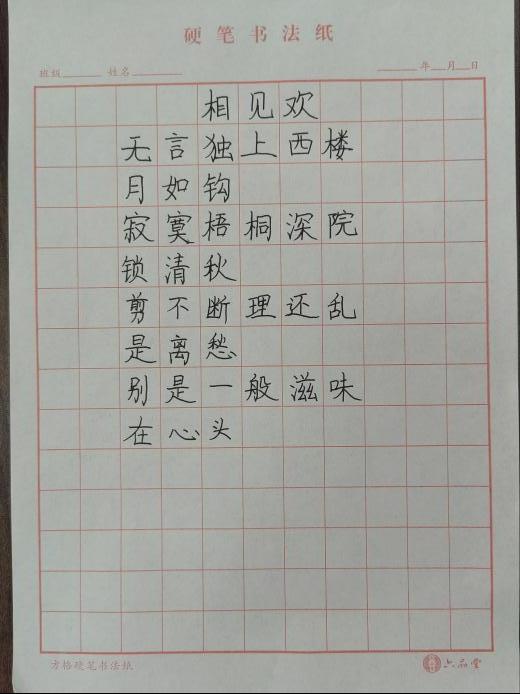 硬笔书法纸
班级 姓名 年 月 日
相见欢
无言独上西楼
月如钩
寂寞梧桐深院
锁清秋
剪不断理还乱
是离愁
别是一般滋味
在心头
方格硬笔书法纸 六品堂